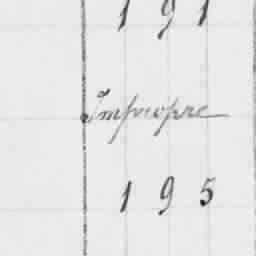 191
Impropre
195